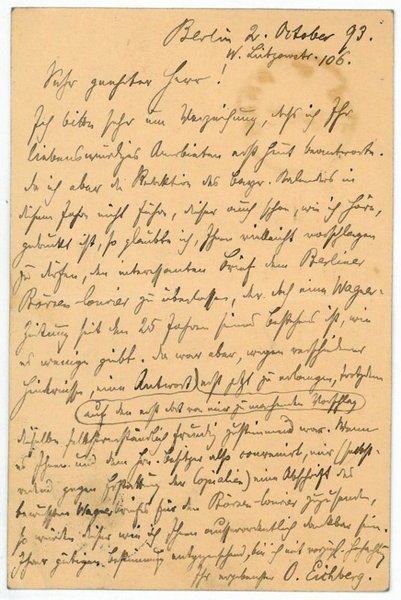 Berlin 2. October 93.
W. Lützowstr. 106.
Sehr geehrter Herr!
Ich bitte sehr um Verzeihung, daß ich Ihr
liebenswürdiges Anerbieten erst heut beantworte.
Da ich aber die Redaktion des Bayr. Kalenders in
diesem Jahre nicht führe, dieser auch schon, wie ich höre,
gedruckt ist, so glaubte ich, Ihnen vielleicht vorschlagen
zu dürfen, den interessanten Brief dem Berliner
Börsen Courier zu überlassen, der doch eine Wagner-
Zeitung seit den 25 Jahren seines Bestehens ist, wie
es wenige giebt. Da war aber, wegen verschiedener
Hindernisse, eine Antwort erst jetzt zu erlangen, trotzdem
auf den erst dort von mir zu machenden Vorschlag
dieselbe selbstverständlich freudig zustimmend war. Wenn
es Ihnen und dem Hrn. Besitzer also convenirt, mir (selbst-
redend gegen Erstattung der Copialien) eine Abschrift des
bewußten Wagnerbriefs für den Börsen-Courier zuzusenden,
so würden dieser wie ich Ihnen außerordentlich dankbar sein.
Ihrer gütigen Bestimmung entgegensehend, bin ich mit vorzügl. Hochachtung
Ihr ergebenster O. Eichberg.